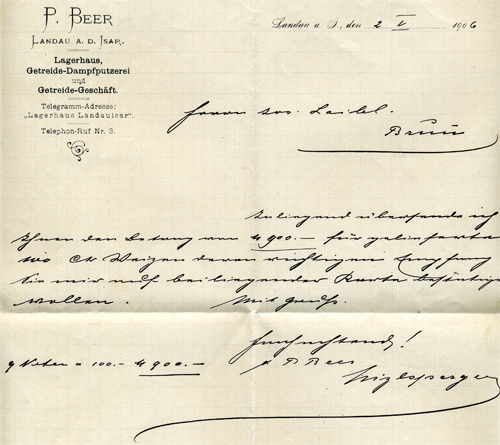 P. Beer
Landau a. d. Isar.
Lagerhaus,
Getreide-Dampfputzerei
und
Getreide-Geschäft.
Telegramm-Adresse:
„Lagerhaus Landauisar“.
Telephon-Ruf Nr. 3.
Landau a. I., den 2 V 1906
Herrn Jos. Loibl.
Beiliegend übersende ich
Ihnen den Betrag von M 900.— für gelieferte
Ctr Weizen deren richtigen Empfang
Sie mir auf beiliegender Karte bestätigen
wollen. Mit Gruß.
Hochachtend!
p P Beer
9 Noten a 100.- M 900.—